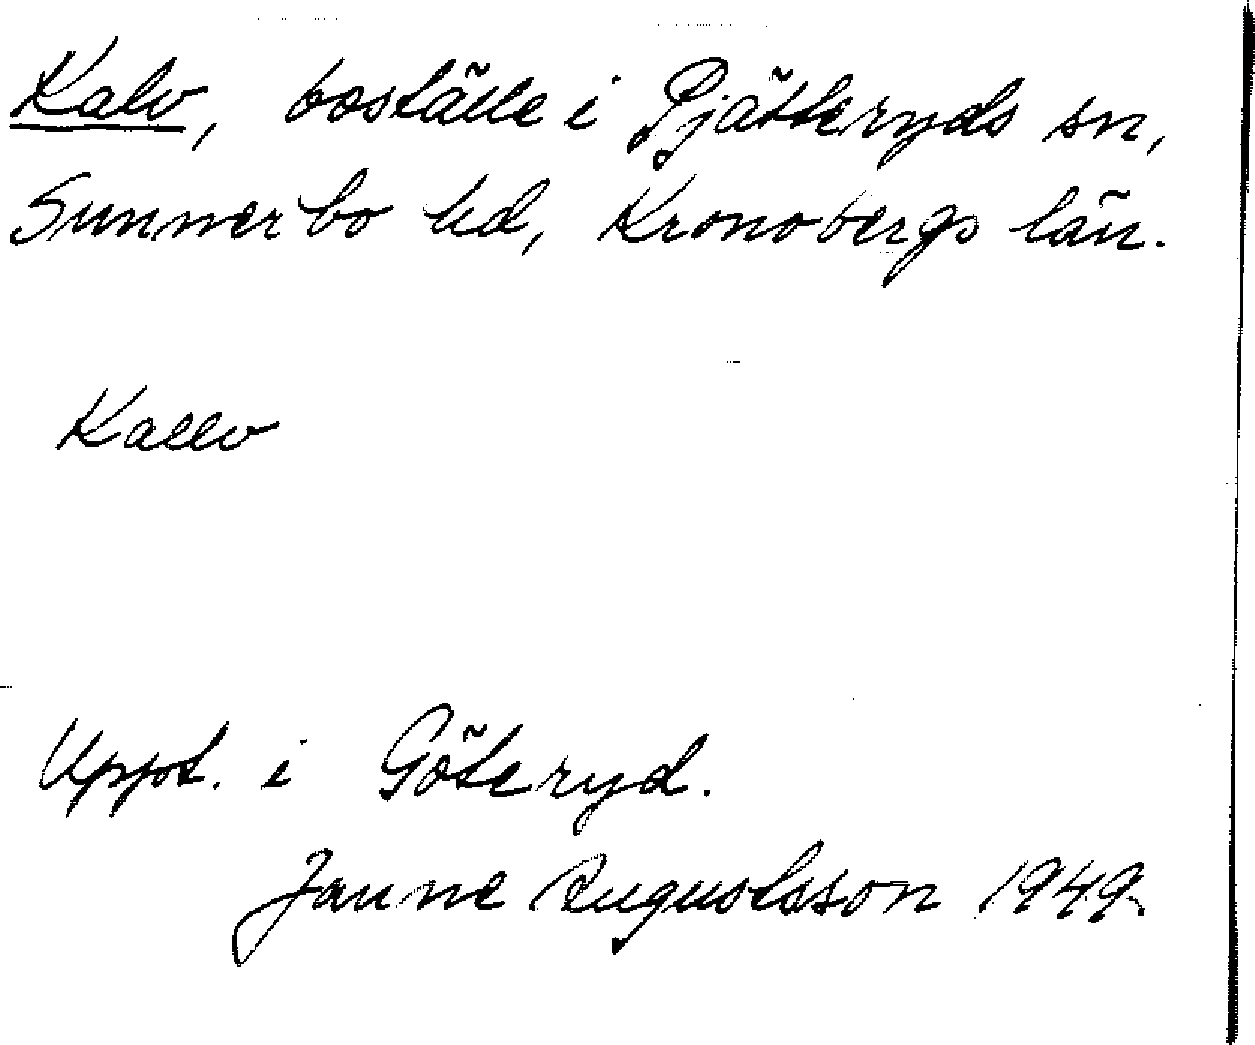 Kalv, boställe i Pjätteryds sn,
Sunnerbo hd, Kronobergs län.
Kallv
Uppt. i Göteryd.
Janne Augustsson 1949.